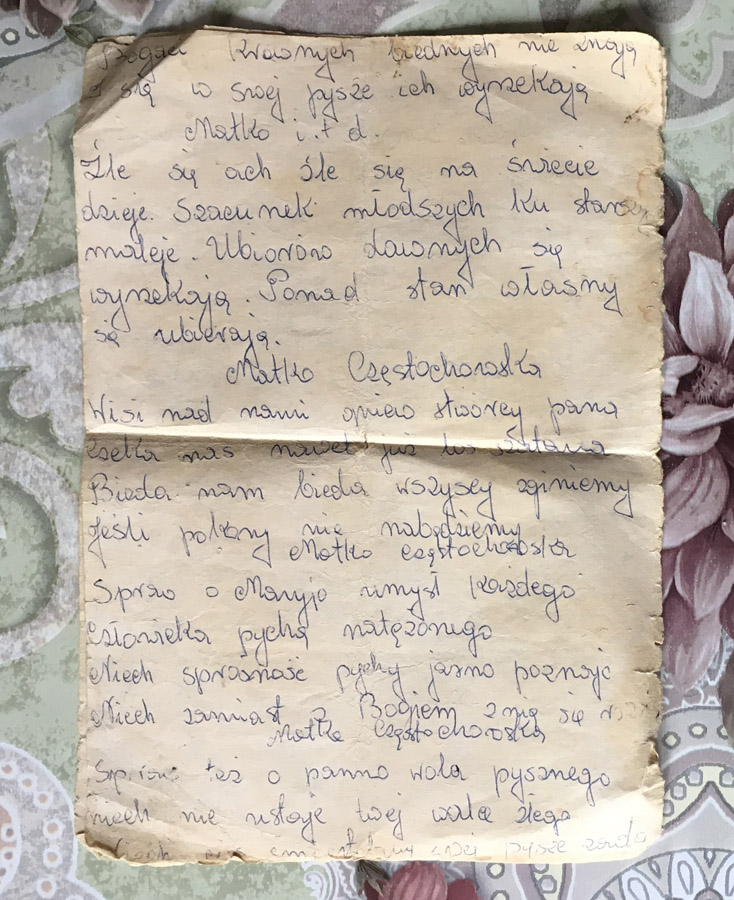 Bogaci krewnych biednych nie znają
a się w swej pysze ich wyrzekają
Matko i.t d.
Źle się ach źle się na świecie
dzieje. Szacunek młodszych ku starszy
maleje. Ubiorów dawnych się
wyrzekają. Ponad stan własny
się ubierają.
Matko Częstochowska
Wisi nad nami gniew stwórcy pana
czeka nas nawet już los szatana
Bieda nam bieda wszyscy zginiemy
jeśli pokory nie nabędziemy
Matko częstochowska
Spraw o Maryjo umysł każdego
człowieka pychą natężonego
Niech sprośność pychy jasno poznaje
Niech zamiast z Bogiem z nią się
Matko Częstochowska
Spraw też o panno wola pysznego
niech nie ustaje twej walce złego
pysze